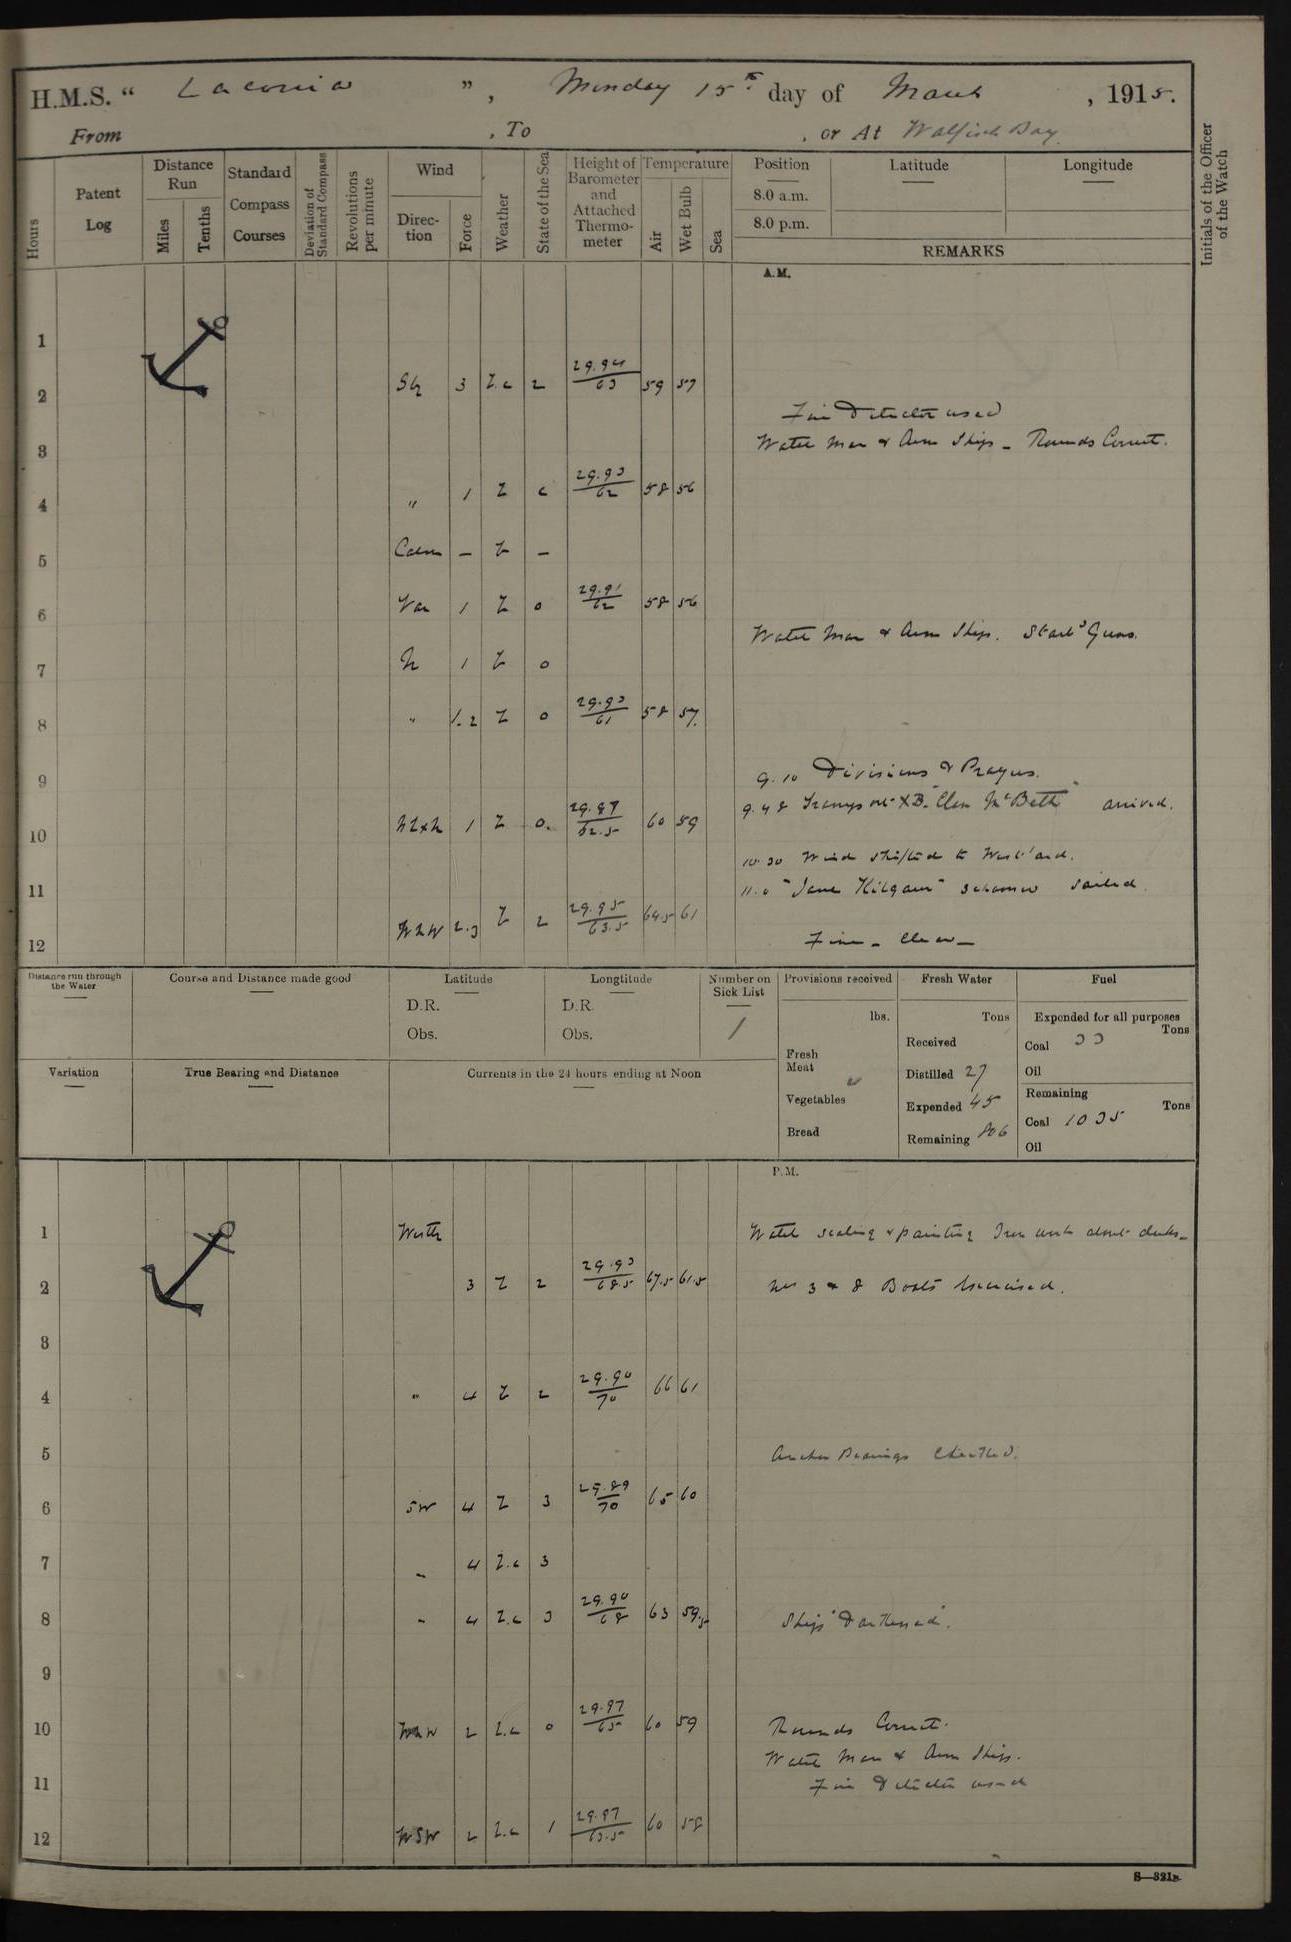 H.M.S. “ Laconia ”, Monday 15th day of March , 1915.
From , To , or At Walfish Bay.
Hours
Patent Log
Distance Run
Miles
Tenths
Standard Compass Courses
Deviation of Standard Compass
Revolutions per minute
Wind
Direction
Force
Weather
State of the Sea
Height of Barometer and Attached Thermometer
Temperature
Air
Wet Bulb
Sea
Position
8.0 a.m.
8.0 p.m.
Latitude
Longitude
REMARKS
Initials of the Officer of the Watch
A.M.
1
2 3 2 59 57
Fire Detector used
3 Watch Man & Arm Ship - Rounds Correct.
4 " 1 29.93/62 58 56
5 Calm — —
6 Var 1 0 29.91/62 58 56
Watch Man & Arm Ship. Starbd Guns.
7 N 1 0
8 " 1.2 0 29.93/61 58 57.
9 9.10 Divisions & Prayers.
9.48 Transport XB "Clan McBeth" arrived.
10 1 0. 29.97/62.5 60 59
10.30 Wind shifted to West'ard.
11 11.0 "Jane Kilgain" schooner sailed.
12 WNW 2.3 2 29.95/63.5 64.5 61
Fine - Clear -
Distance run through the Water
Course and Distance made good
Latitude
D.R.
Obs.
Longtitude
D.R.
Obs.
Number on Sick List
1
Provisions received
lbs.
Fresh Meat
Vegetables
Bread
Fresh Water
Tons
Received
Distilled 27
Expended 45
Remaining 806
Fuel
Expended for all purposes
Tons
Coal 33
Oil
Remaining
Tons
Coal 1035
Oil
Variation
True Bearing and Distance
Currents in the 24 hours ending at Noon
P.M.
1 Watch scaling & painting Iron work about decks -
2 3 2 29.93/68.5 67.5 61.5 Nos 3 & 8 Boats Exercised.
3
4 " 4 2 29.90/70 66 61
5 Anchor Bearings Checked.
6 SW 4 3 29.89/70 65 60
7 4 3
8 " 4 3 29.90/68 63 59.5 Ship "Darkened".
9
10 WNW 2 0 29.97/65 60 59 Rounds Correct.
Watch Man & Arm Ship.
11 Fire Detector used
12 WSW 2 1 29.97/63.5 60 58
S—321B.